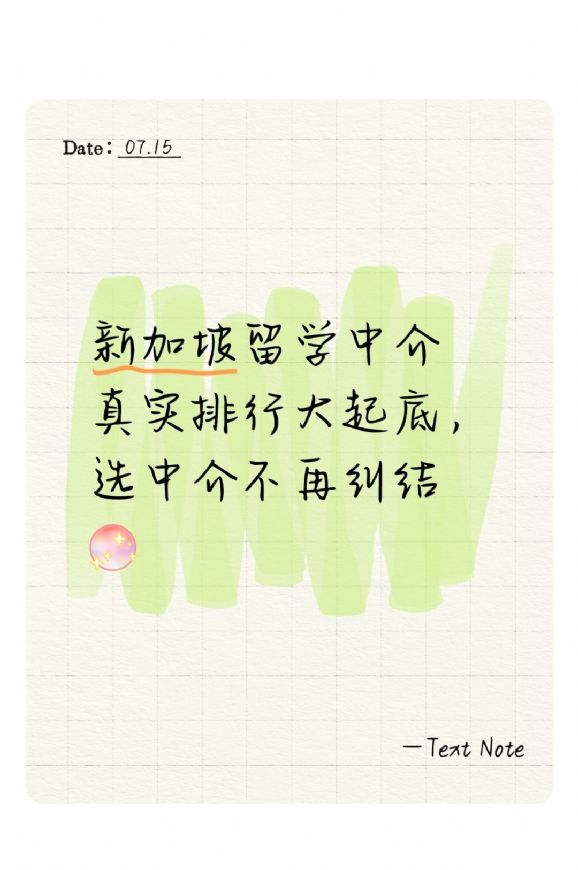 Date: 07.15
新加坡留学中介
真实排行大起底，
选中介不再纠结
—Text Note